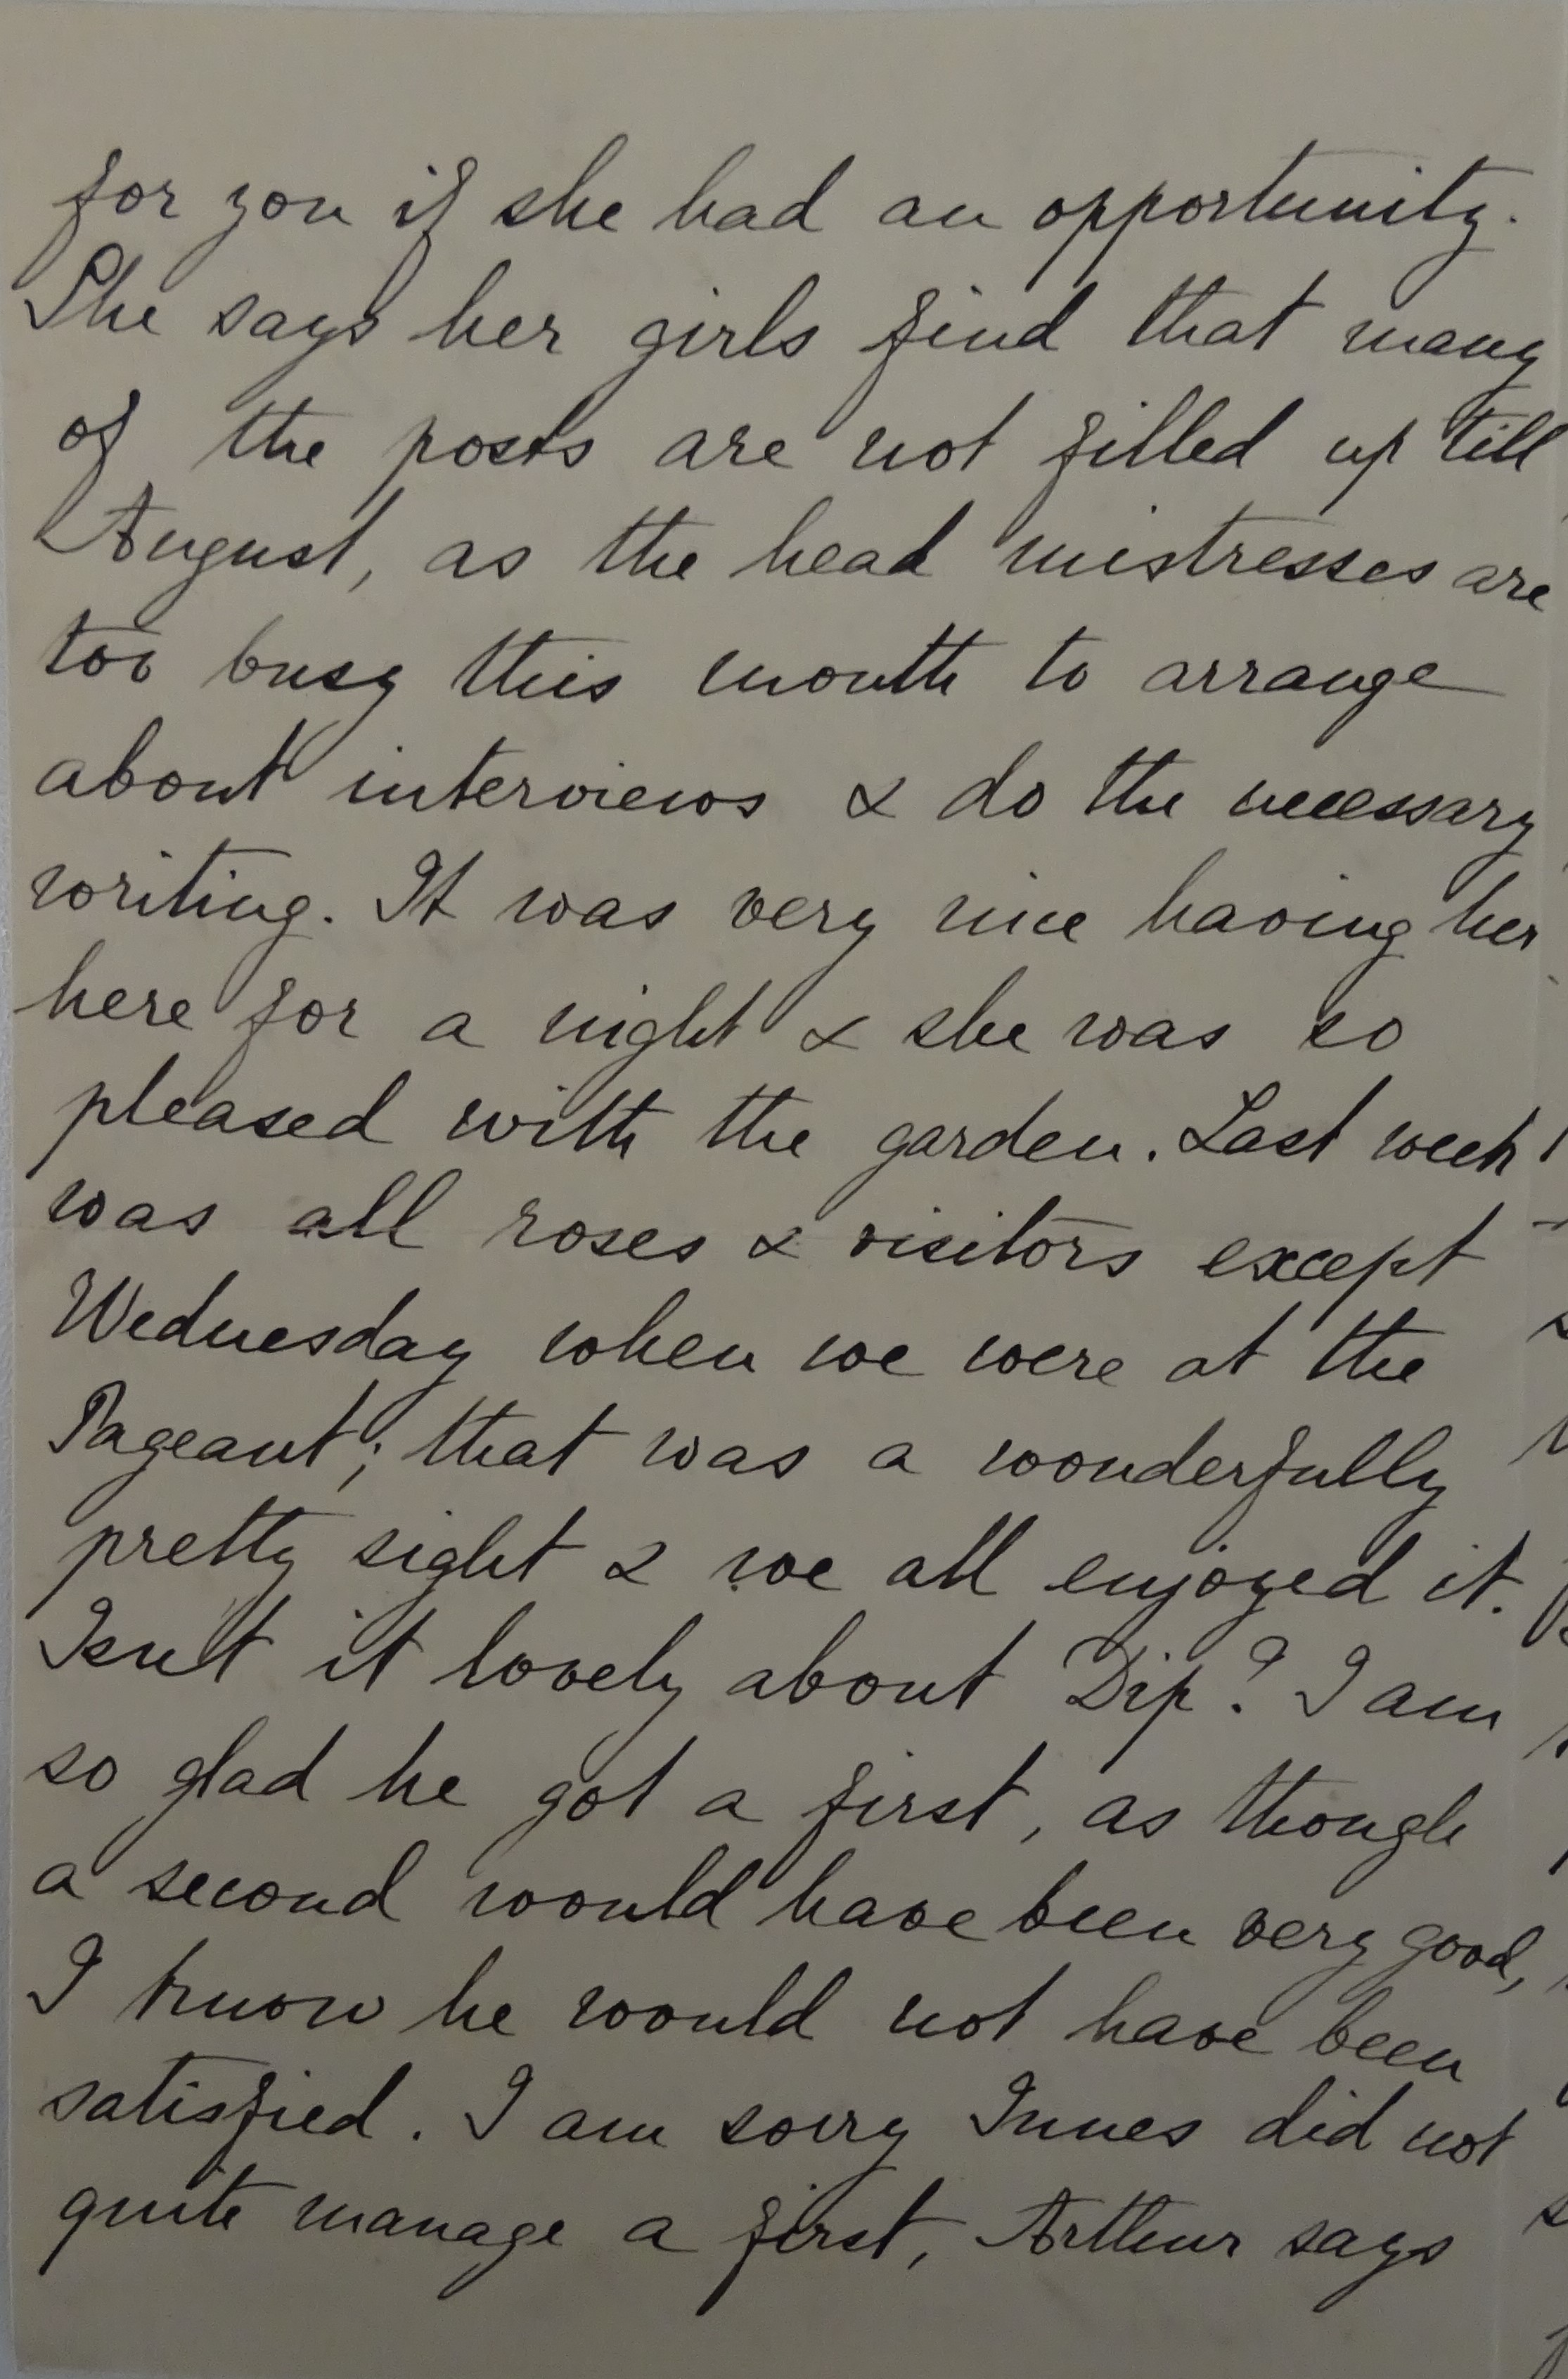 for you if she had an opportunity.
She says her girls find that many
of the posts are not filled up till
August, as the head mistresses are
too busy this month to arrange
about interviews & do the necessary
writing. It was very nice having her
here for a night & she was so
pleased with the garden. Last week
was all roses & visitors except
Wednesday when we were at the
Pageant; that was a wonderfully
pretty sight & we all enjoyed it.
Isn't it lovely about Dip? I am
so glad he got a first, as though
a second would have been very good,
I know he would not have been
satisfied. I am sorry Innes did not
quite manage a first, Arthur says